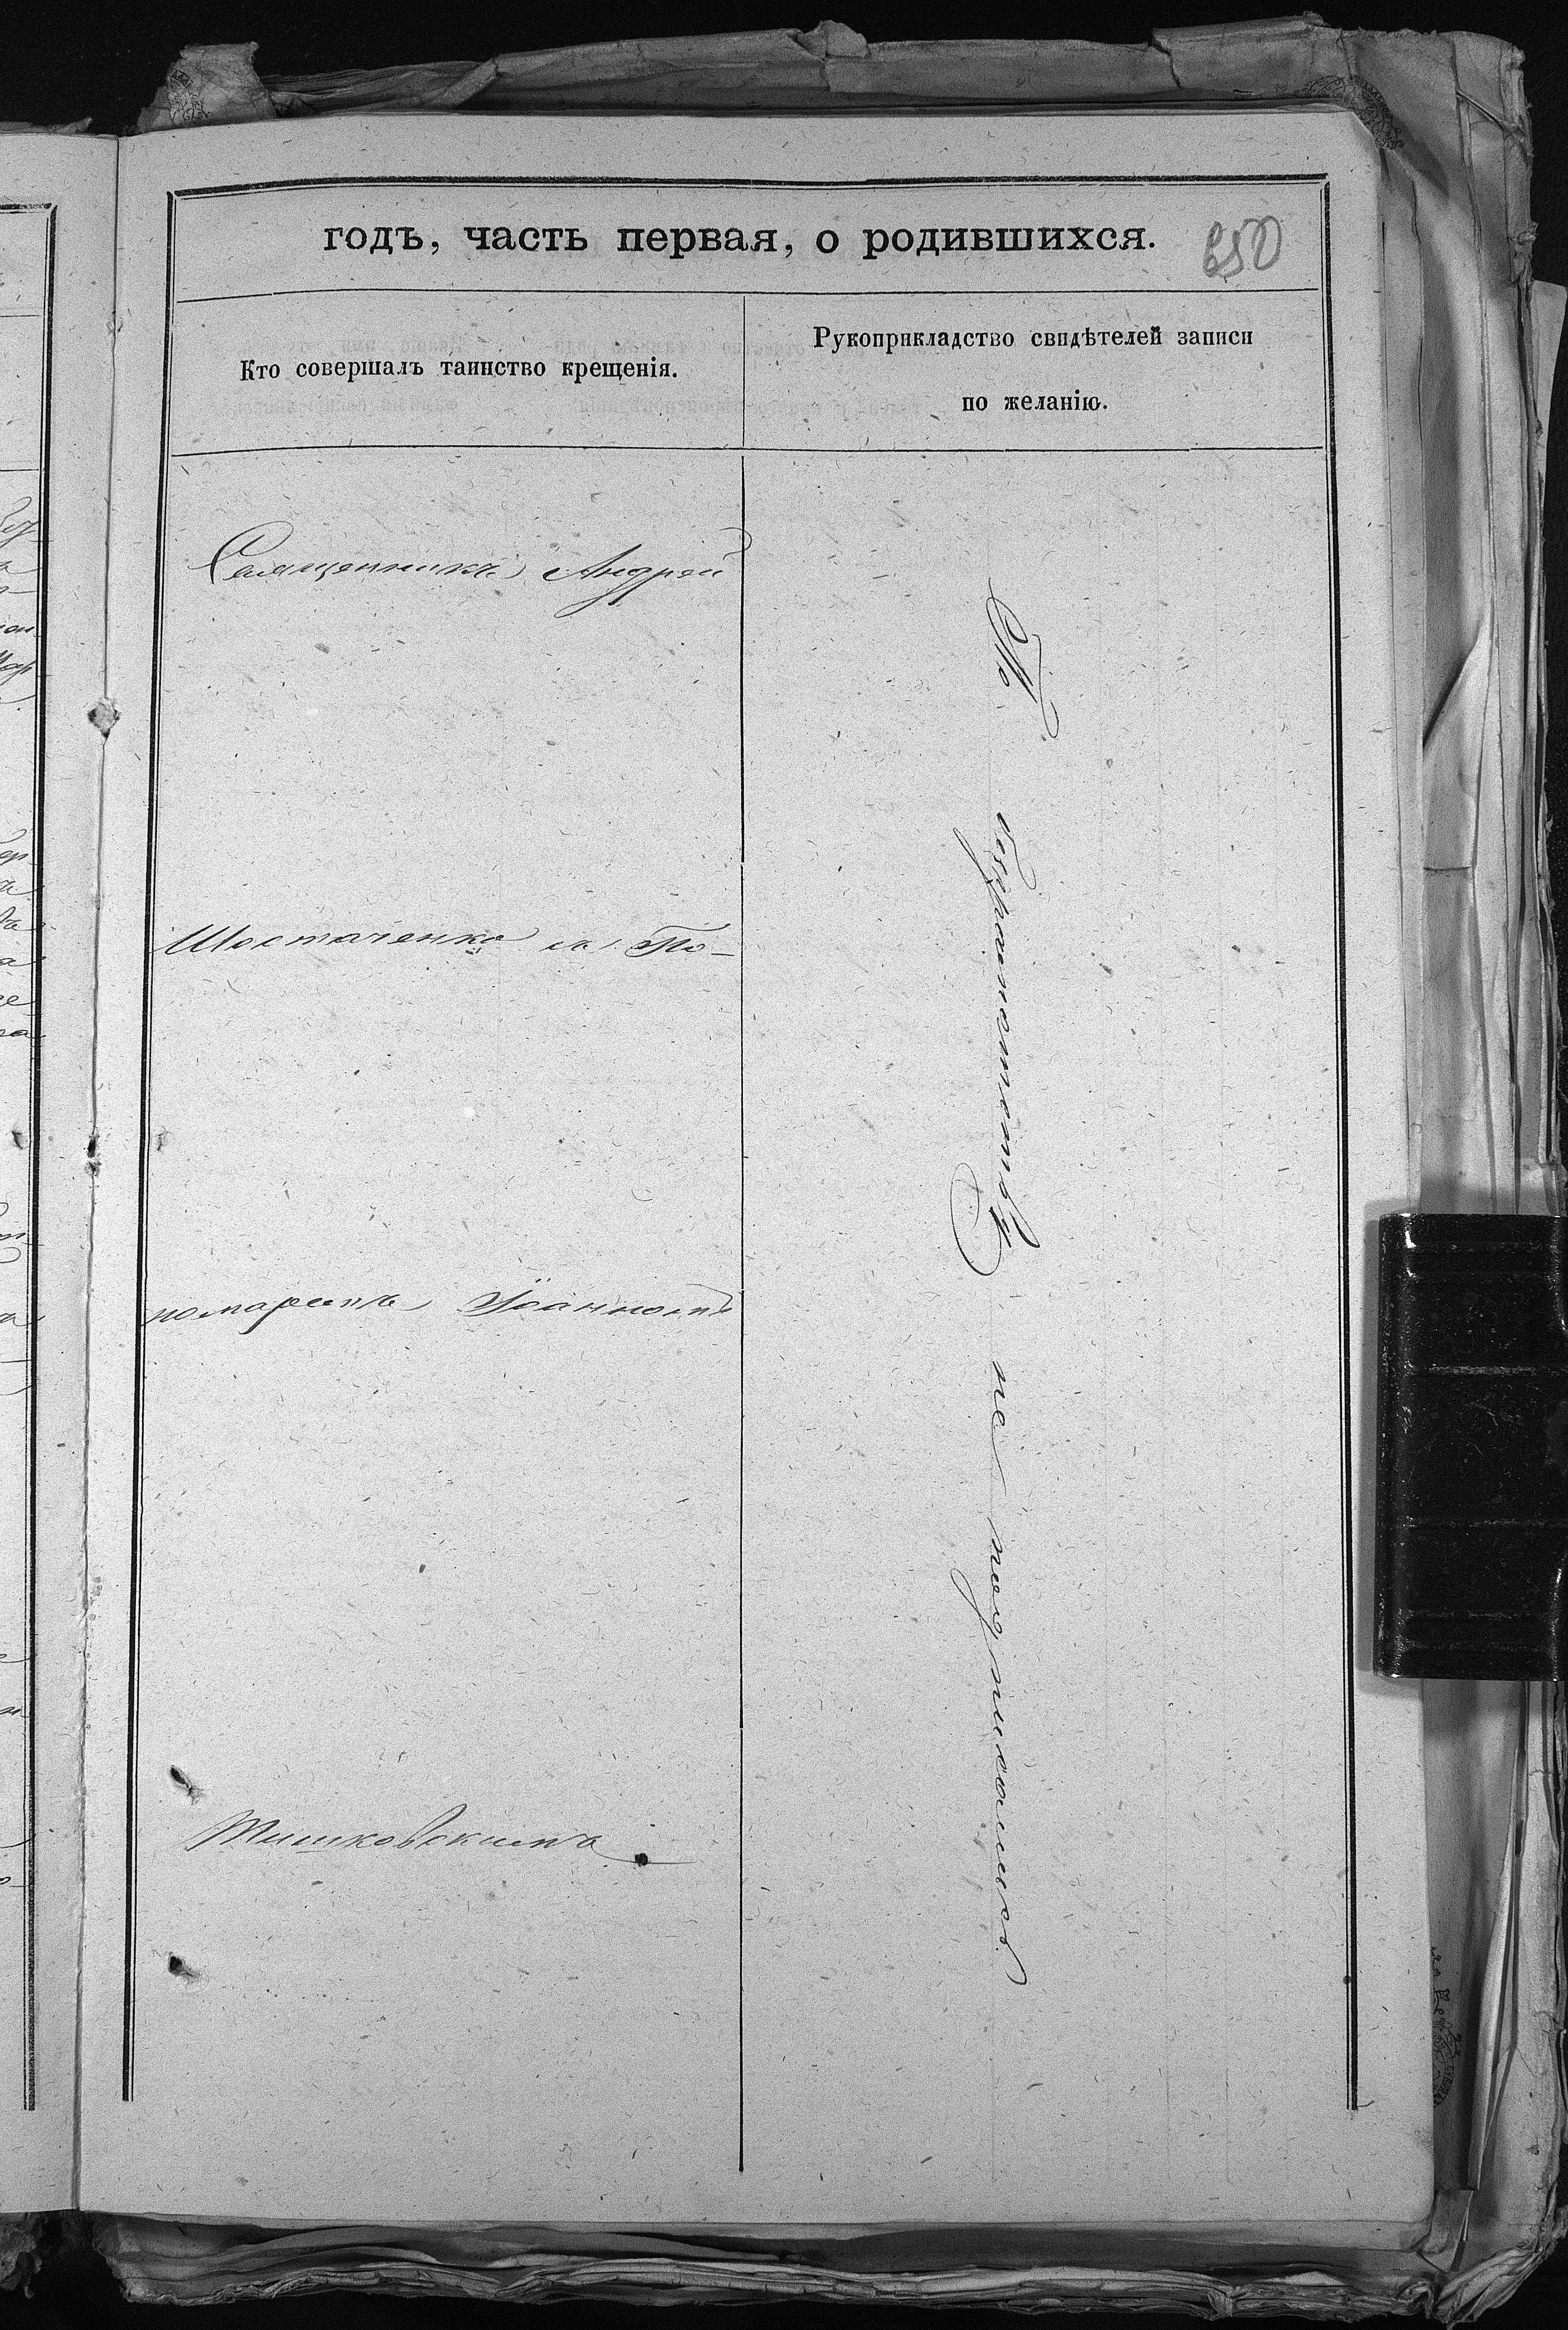 годъ, часть первая, о родившихся.
250
Кто совершалъ таинство крещенія.
Рукоприкладство свидѣтелей записи
по желанію.
Священникъ Андрей
Шостаченко съ По-
номаремъ Іоанномъ
Тишковскимъ
По неграмотности не подписались